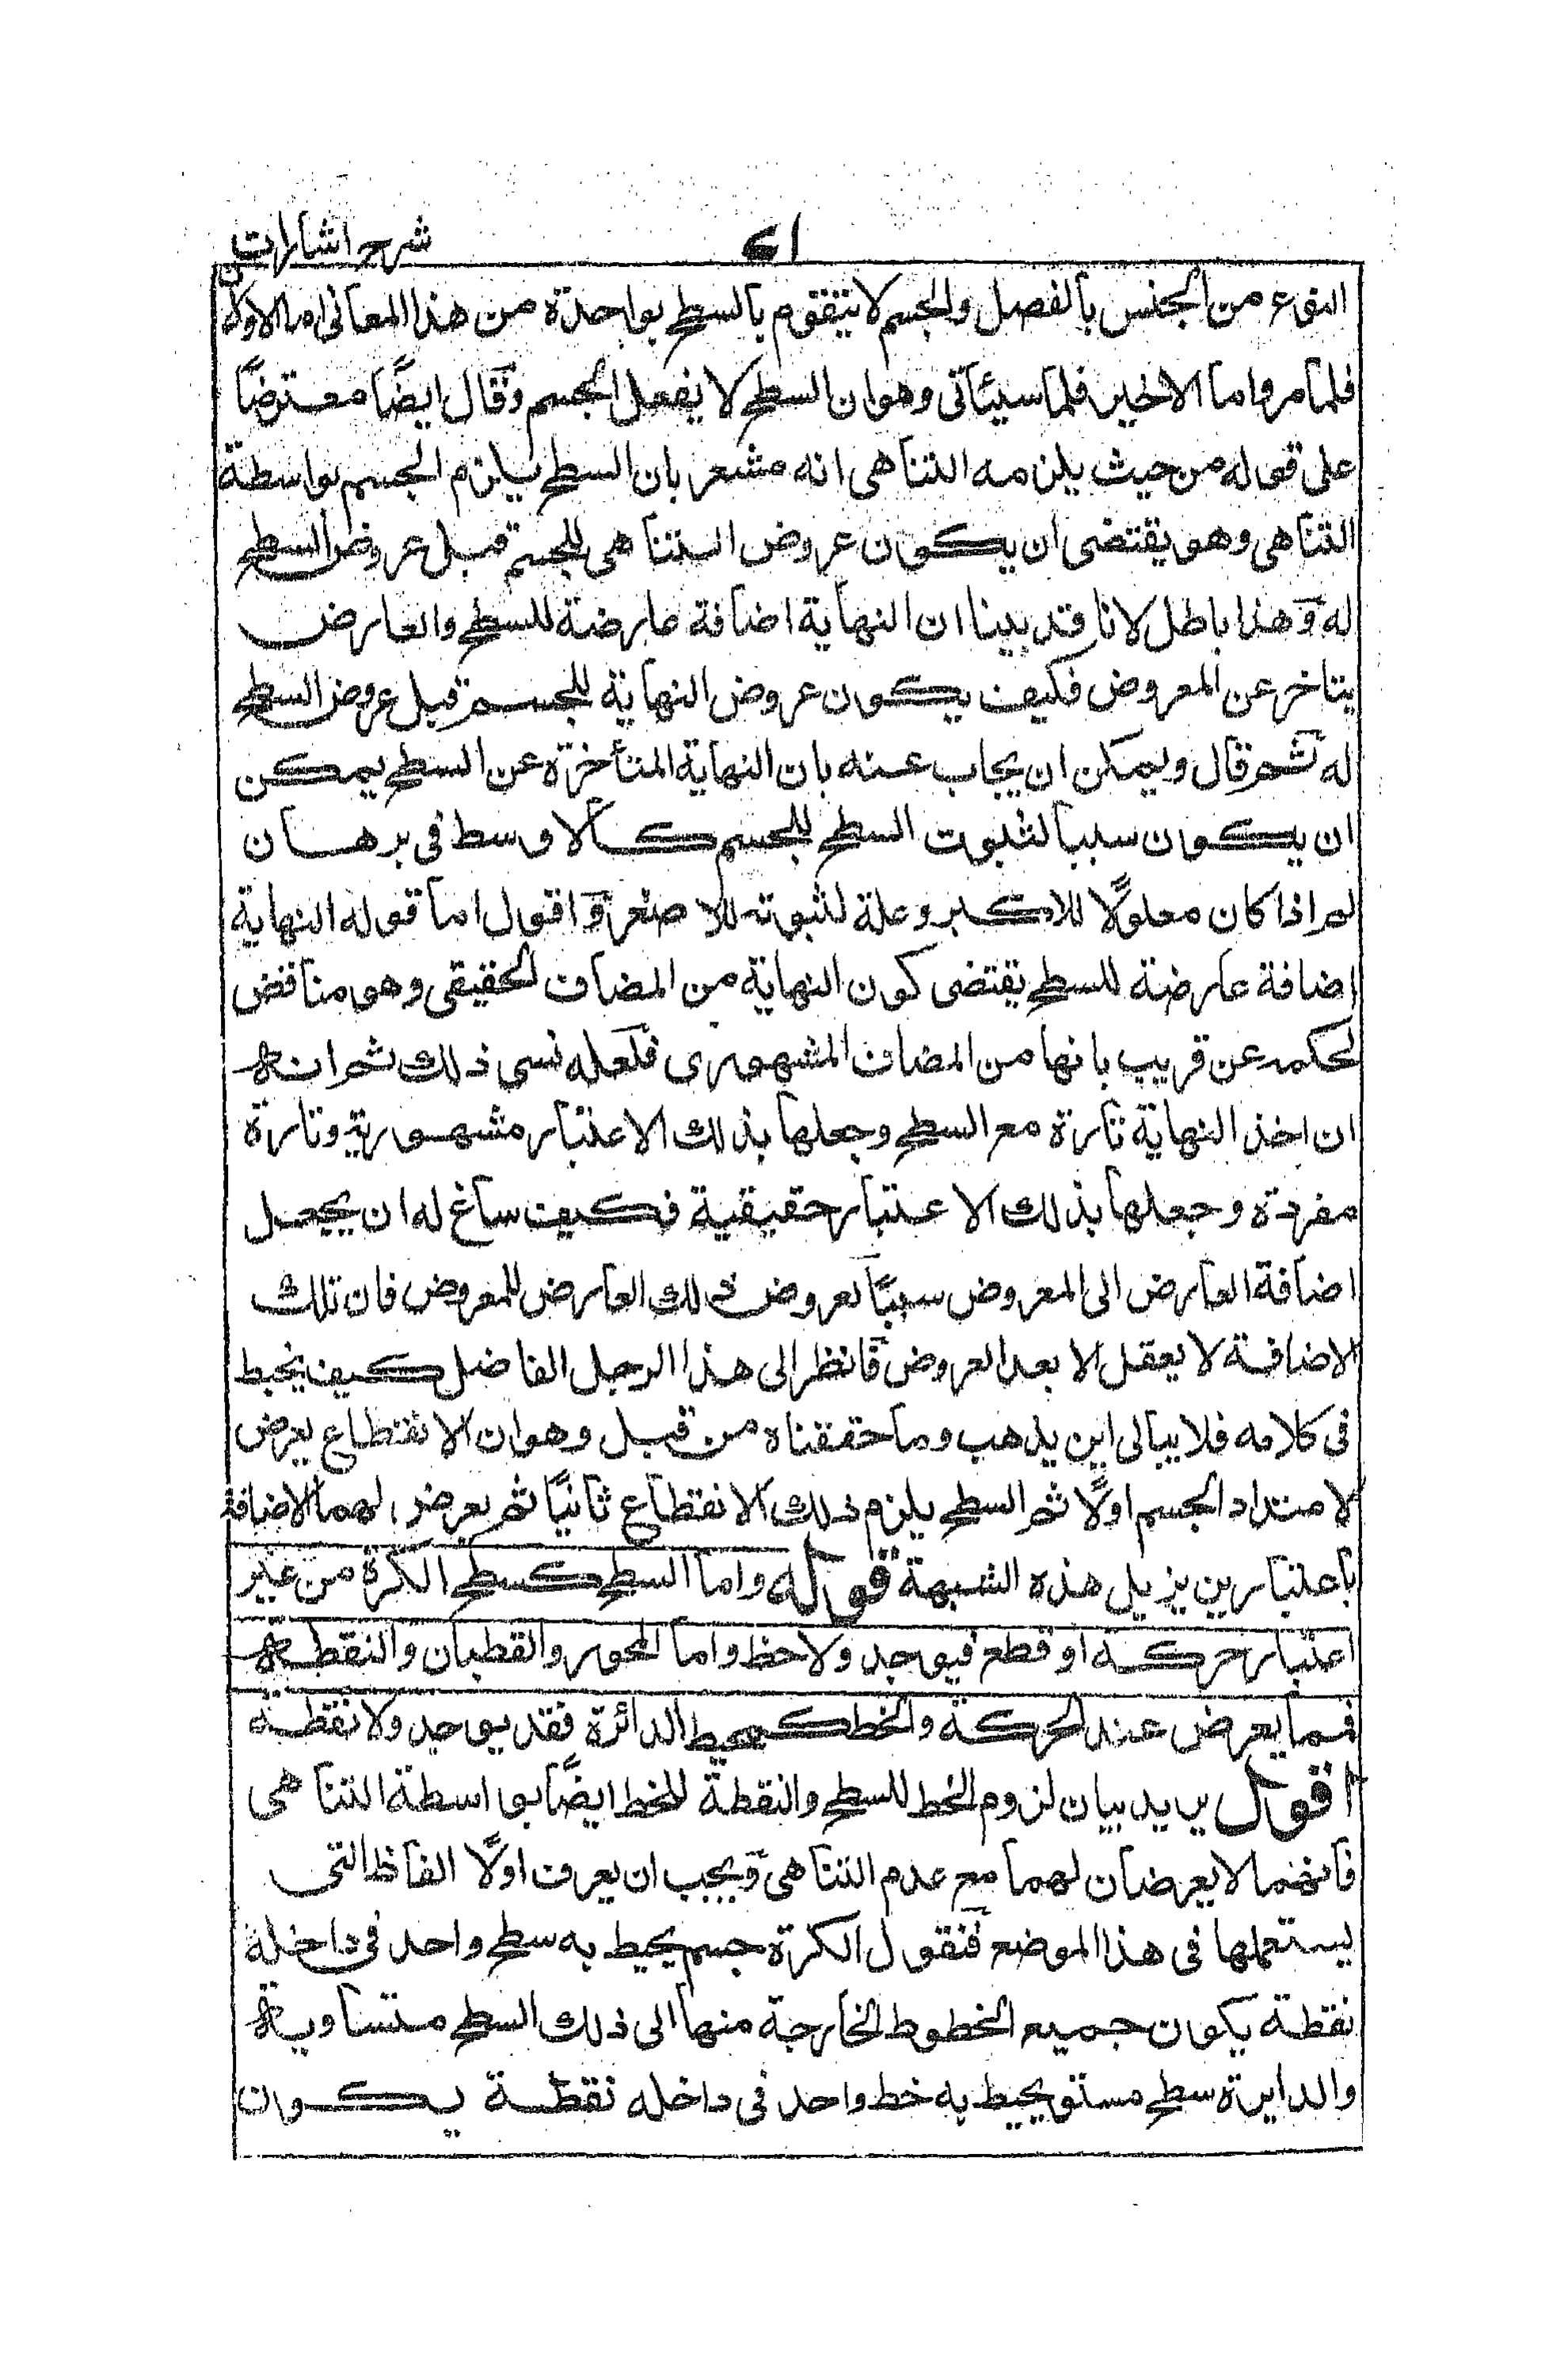 شرح اشارات
النوع من الجنس بالفصل والجسم لا يتقوم بالسطح بواحدة من هذا المعانی اما الاولان
فلما مر واما الاخير فلما سيأتی وهو ان السطح لا يفعل الجسم وقال ايضًا معترضًا
علی قوله من حيث يلزمه التناهی انه مشعر بان السطح يلزم الجسم بواسطة
التناهی وهو يقتضی ان يكون عروض التناهی للجسم قبل عروض السطح
له وهذا باطل لانا قد بينا ان النهاية اضافة عارضة للسطح والعارض
يتاخر عن المعروض فكيف يكون عروض النهاية للجسم قبل عروض السطح
له ثم قال ويمكن ان يجاب عنه بان النهاية المتأخرة عن السطح يمكن
ان يكون سببا لثبوت السطح للجسم كالاوسط فی برهان
لم اذا كان معلولًا للاكبر وعلة لثبوته للاصغر واقول اما قوله النهاية
اضافة عارضة للسطح يقتضی كون النهاية من المضاف الحقيقی وهو مناقض
لحكمه عن قريب بانها من المضاف المشهوری فلعله نسی ذلك ثم انه
ان اخذ النهاية تارة مع السطح وجعلها بذلك الاعتبار مشهورية وتارة
مفردة وجعلها بذلك الاعتبار حقيقية فكيف ساغ له ان يجعل
اضافة العارض الی المعروض سببًا لعروض ذلك العارض للمعروض فان تلك
الاضافة لا يعقل الا بعد العروض فانظر الی هذا الرجل الفاضل كيف يخبط
فی كلامه فلا يبالی اين يذهب وما حققناه من قبل وهو ان الانقطاع يعرض
لامتداد الجسم اولًا ثم السطح يلزم ذلك الانقطاع ثانيًا ثم يعرض لهما الاضافة
باعتبارين يزيل هذه الشبهة قوله واما السطح كسطح الكرة من غير
اعتبار حركة او قطع فيوجد ولا خط واما المحور والقطبان والنقطة
فمما يعرض عند الحركة والخط كمحيط الدائرة فقد يوجد ولا نقطة
اقول يريد بيان لزوم الخط للسطح والنقطة للخط ايضًا بواسطة التناهی
فانهما لا يعرضان لهما مع عدم التناهی ويجب ان يعرف اولًا الفاظ التی
يستعملها فی هذا الموضع فنقول الكرة جسم يحيط به سطح واحد فی داخله
نقطة يكون جميع الخطوط الخارجة منها الی ذلك السطح متساوية
والدايرة سطح مستو يحيط به خط واحد فی داخله نقطة يكون